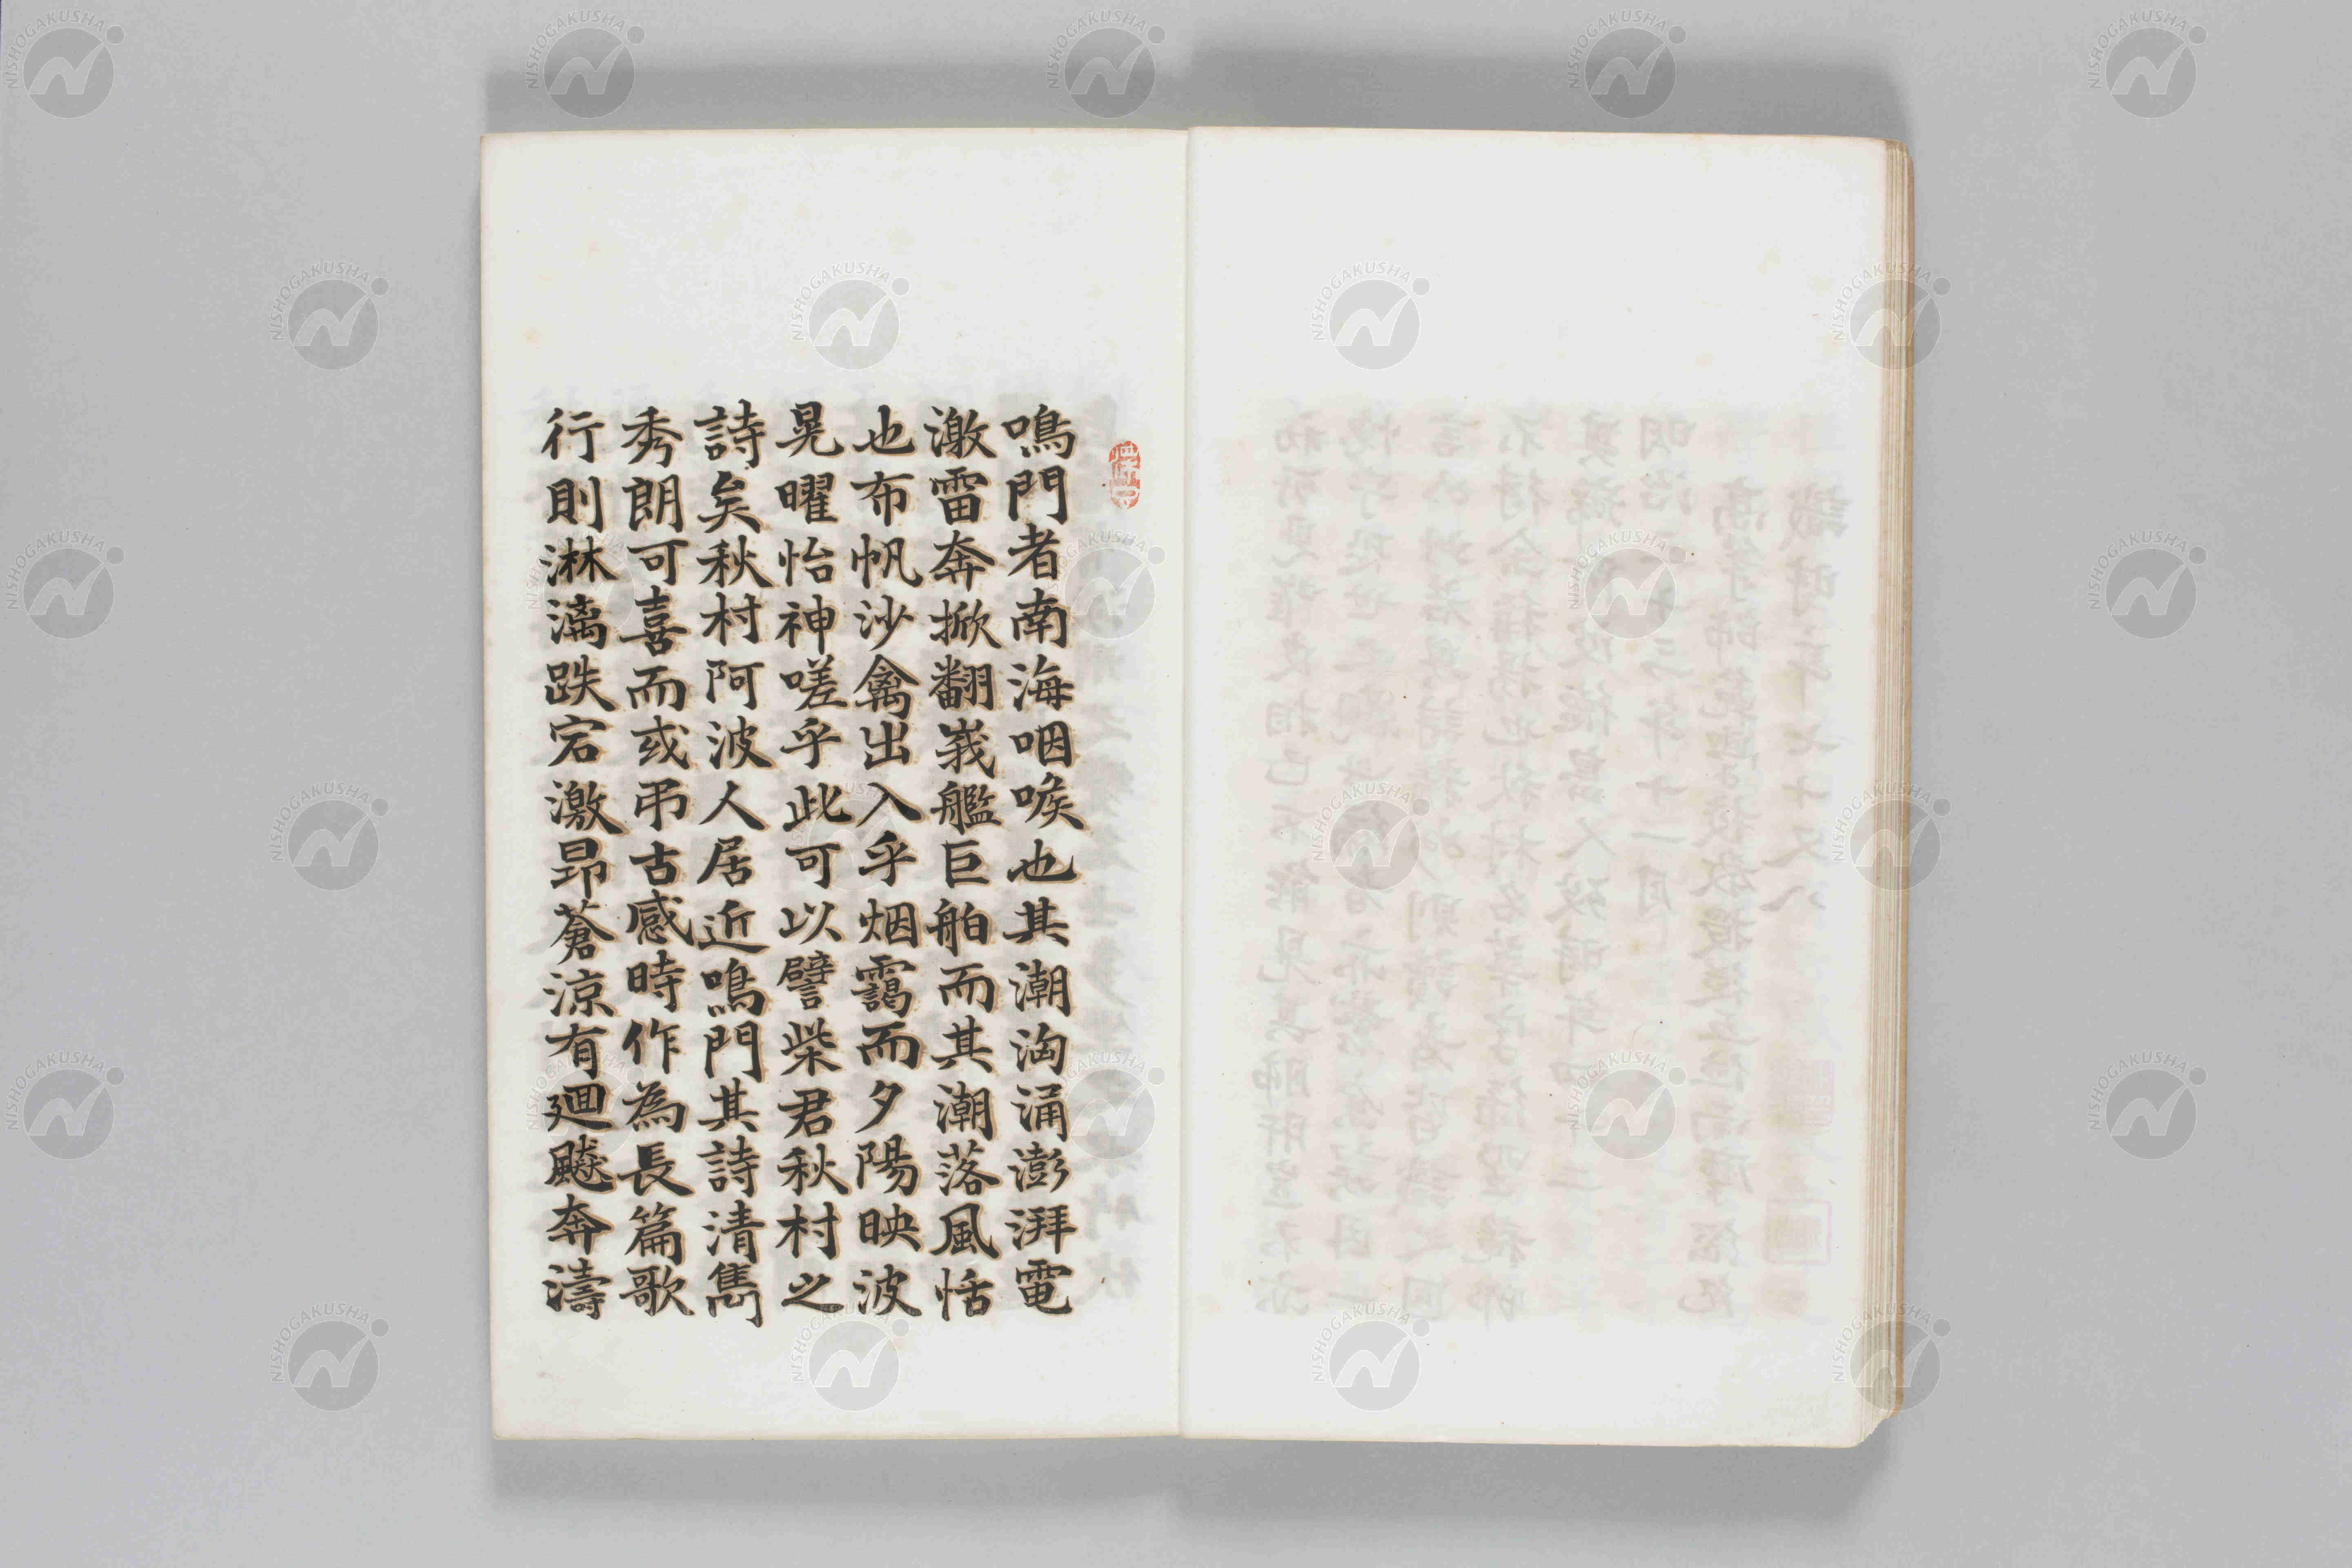 鳴門者南海咽喉也其潮淘涌澎湃電
激雷奔掀翻峩艦巨舶而其潮落風恬
也布帆沙禽出入乎烟靄而夕陽映波
晃曜怡神嗟乎此可以譬柴君秋村之
詩矣秋村阿波人居近鳴門其詩清雋
秀朗可喜而或弔古感時作為長篇歌
行則淋漓跌宕激昂蒼涼有廻飈奔濤
NISHOGAKUSHA